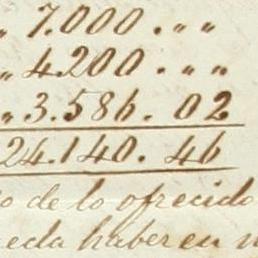 „ 7.000. „ „
„ 4.200. „ „
„ 3.586. 02
24.140. 46
o de lo ofrecido
eda haber en